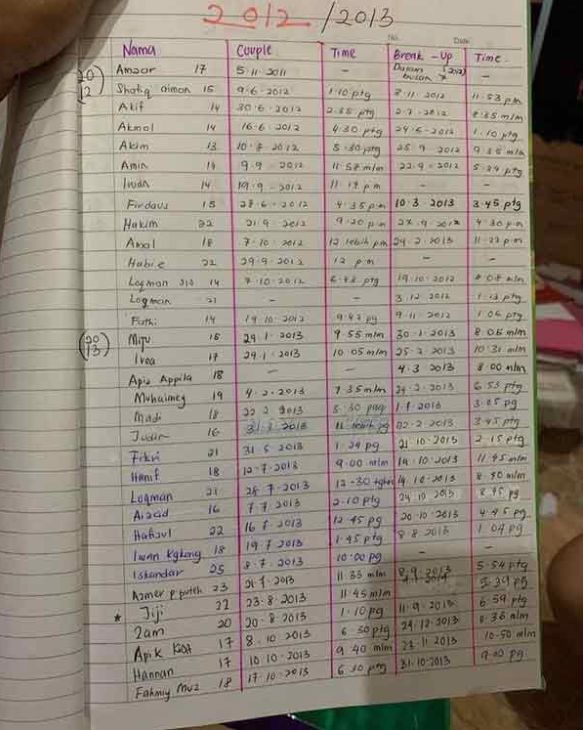 2012/2013
No. Date
Nama Couple Time Break-Up Time
20/12 Amzar 17 5.11.2011 - Dalam bulan 7 2012 -
Shafiq aiman 15 9.6.2012 1.10 ptg 8.11.2012 11.53 pm
Akif 14 30.6.2012 2.35 ptg 2.7.2012 8.35 mlm
Akmal 14 16.6.2012 4.30 ptg 24.6.2012 1.10 ptg
Akim 13 10.8.2012 5.30 ptg 25.9.2012 9.35 mlm
Amin 14 9.9.2012 11.58 mlm 22.9.2012 5.24 ptg
14 19.9.2012 11.17 p.m - -
Firdaus 15 28.6.2012 4.35 p.m 10.3.2013 3.45 ptg
Hakim 22 21.9.2012 9.20 p.m 27.9.2012 4.30 p.m
Amal 18 7.10.2012 12 lebih p.m 24.2.2013 11.22 p.m
Habi.e 22 29.9.2012 12 p.m - -
Logman 14 7.10.2012 6.43 ptg 19.10.2012 8.08 mlm
Logman 21 - - 3.12.2012 1.13 ptg
Fathi 14 19.10.2012 9.42 pg 9.11.2012 1.06 ptg
20/13 Miju 15 29.1.2013 9.55 mlm 30.1.2013 8.06 mlm
17 29.1.2013 10.05 mlm 25.2.2013 10.31 mlm
Apis Appila 18 - - 4.3.2013 8.00 mlm
Muhaimey 19 4.2.2013 7.35 mlm 24.2.2013 6.53 ptg
Madi 18 22.2.2013 5.30 ptg 1.4.2013 3.05 pg
16 31.3.2013 11 lebih pg 22.2.2013 3.45 ptg
Fikri 21 31.5.2013 1.24 pg 21.10.2013 2.15 ptg
Hanif 18 12.7.2013 9.00 mlm 14.10.2013 11.45 mlm
Logman 21 28.7.2013 12.30 14.10.2013 8.50 mlm
16 7.7.2013 2.10 ptg 24.10.2013 8.45 pg
Hafizul 22 16.8.2013 12.45 pg 20.10.2013 4.45 pg
18 19.7.2013 1.45 ptg 8.8.2013 1.04 pg
Iskandar 25 8.7.2013 10.00 pg - -
Azmer P puteh 23 21.7.2013 11.33 mlm 8.9.2013 5.54 ptg
* Jiji 22 23.8.2013 11.45 mlm 5.39 pg
Zam 20 20.8.2013 1.10 pg 11.9.2013 6.59 ptg
Apik 17 8.10.2013 6.30 ptg 24.12.2013 8.36 mlm
Hannan 17 10.10.2013 9.40 mlm 23.11.2013 10.50 mlm
Fahmiy Muz 18 17.10.2013 6.30 ptg 31.10.2013 9.00 pg